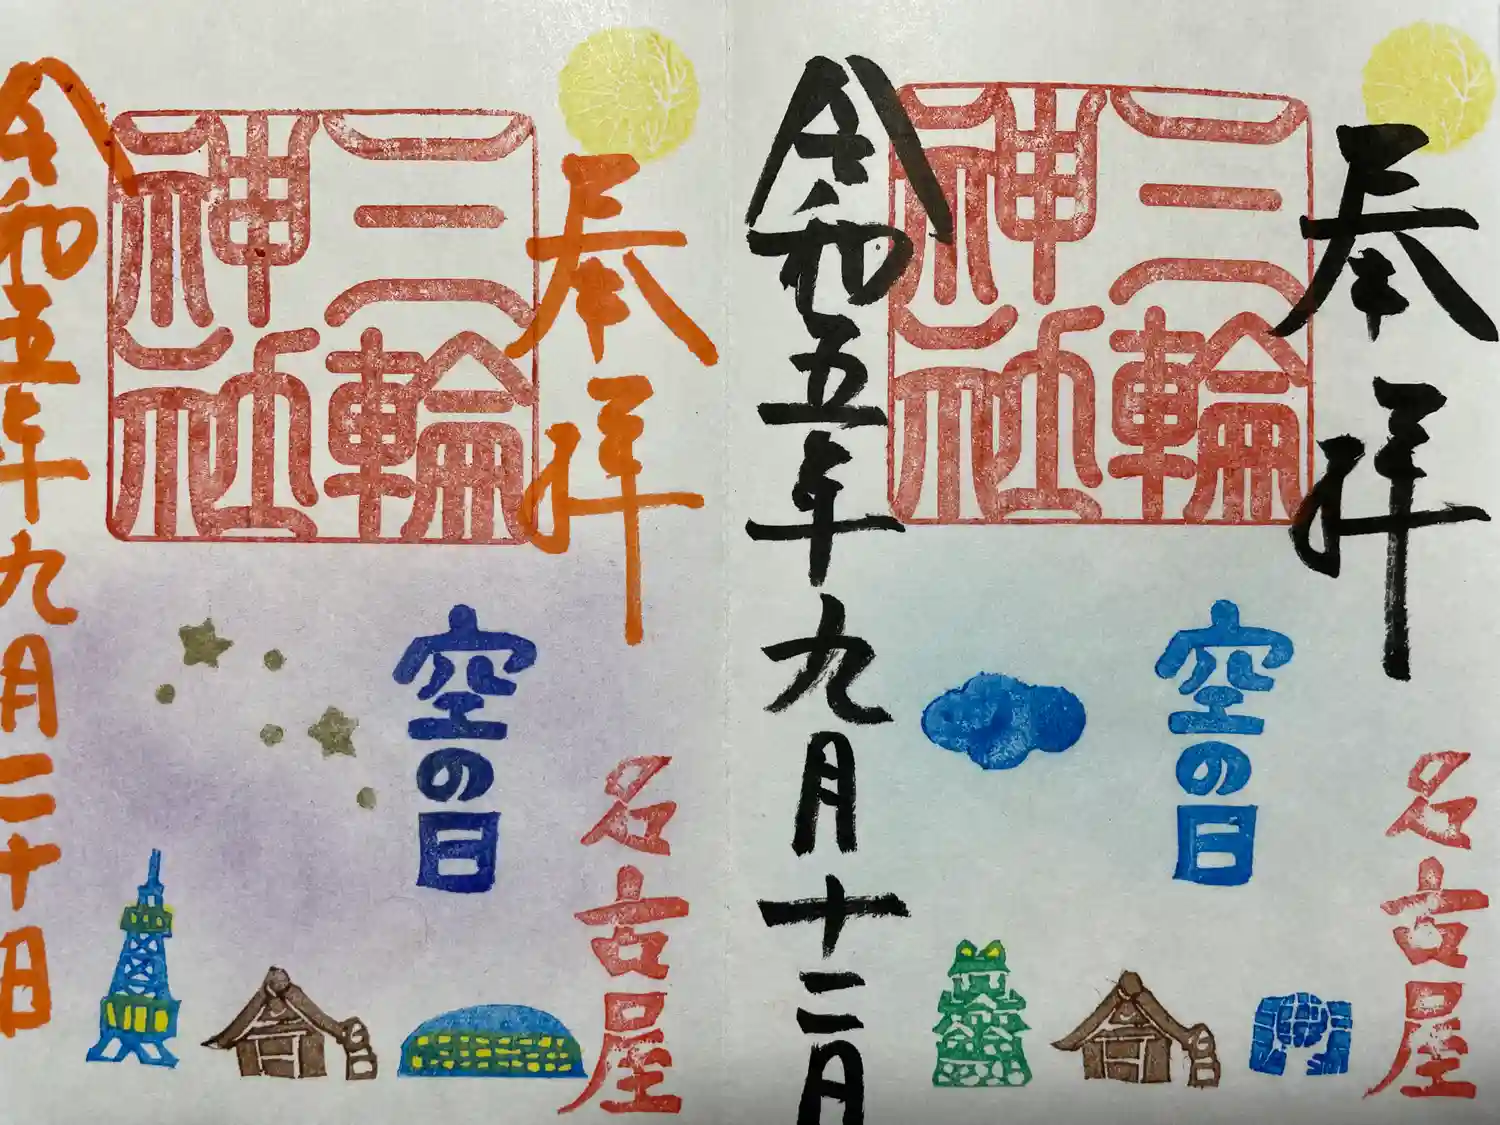 奉拝
名古屋
三輪
神社
空の日
令和五年九月十二日
奉拝
名古屋
三輪
神社
空の日
令和五年九月二十日